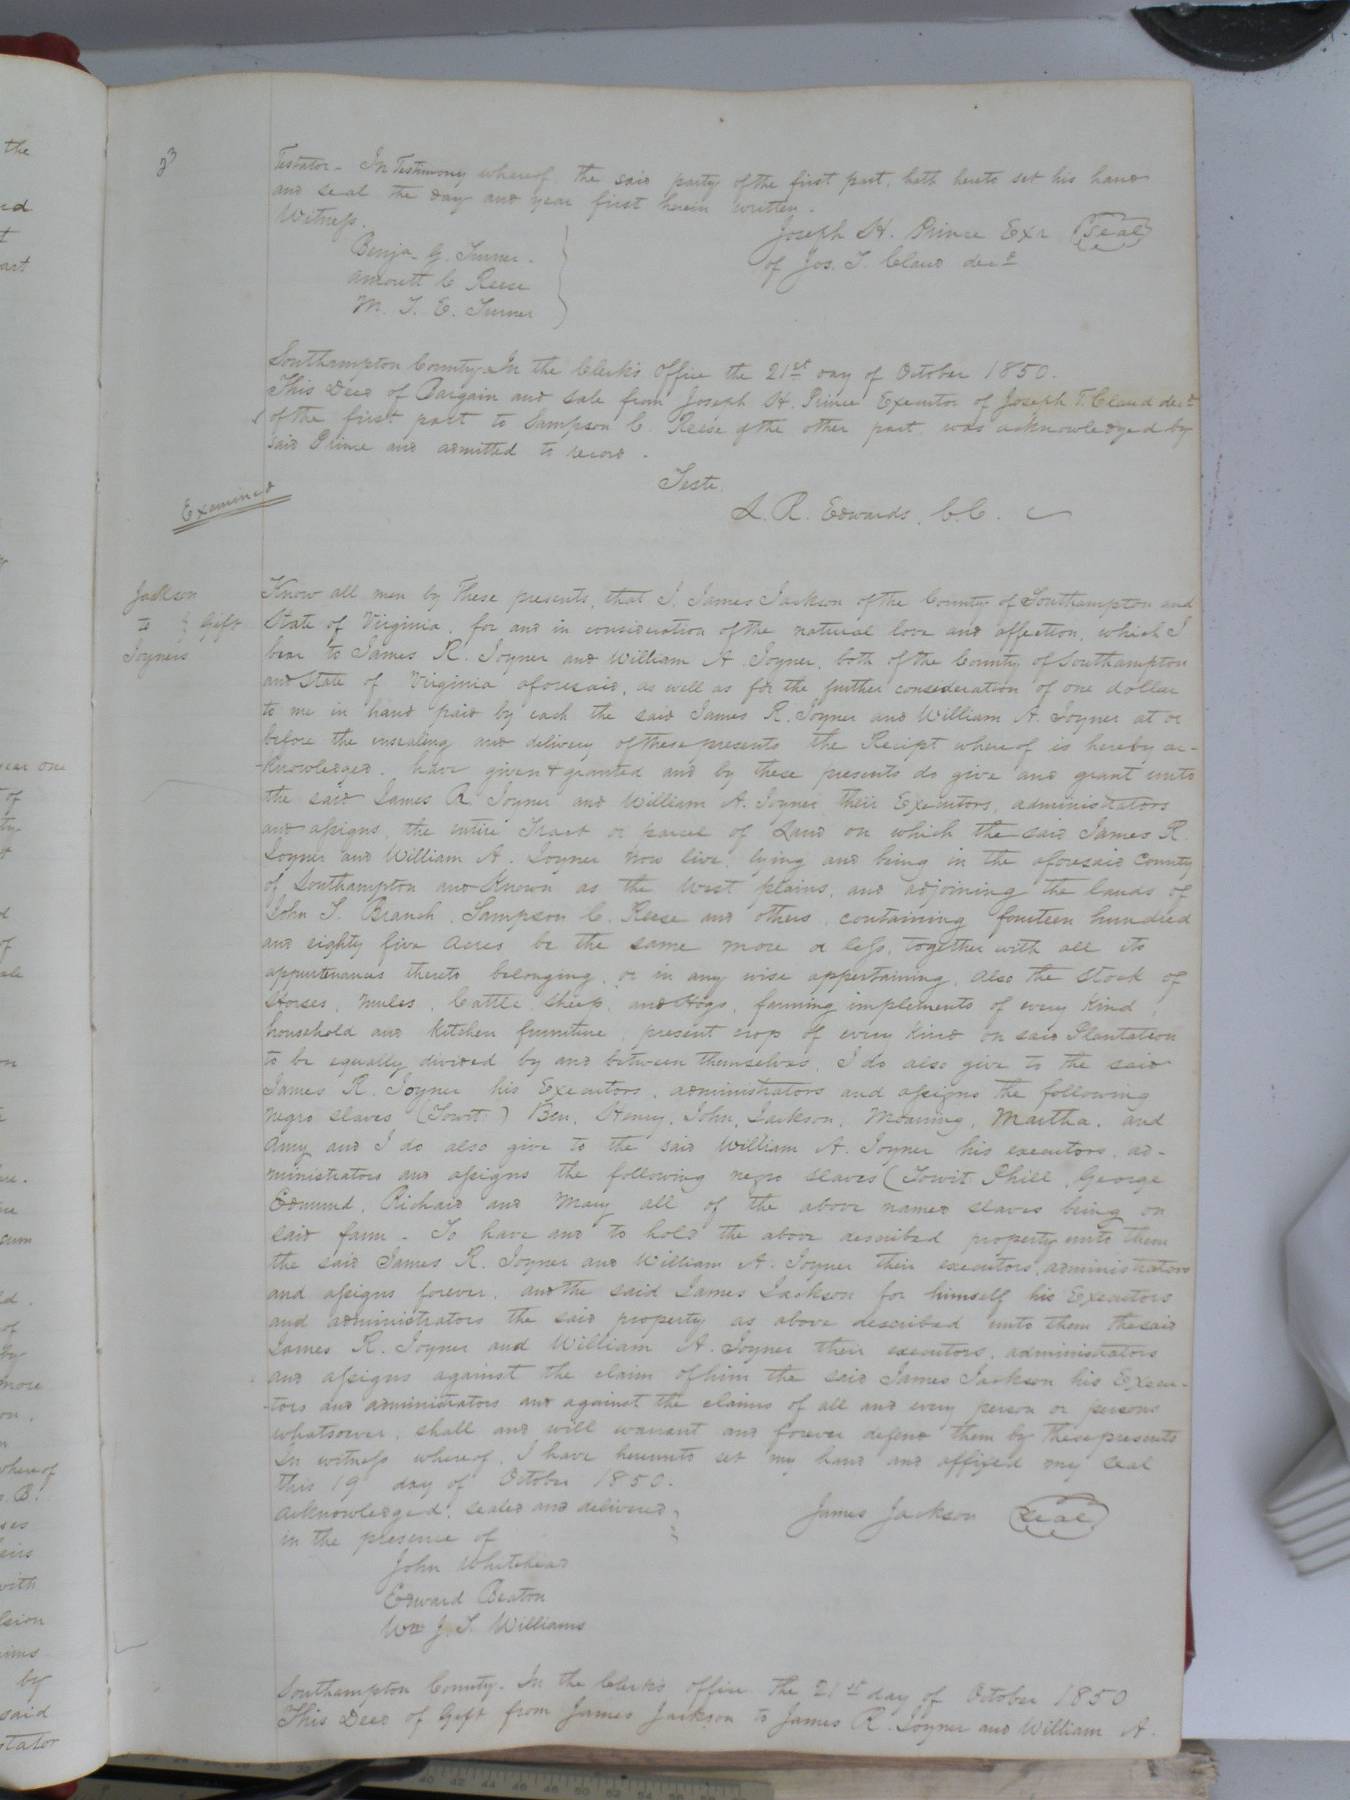 23
Testator - In Testimony whereof, the said party of the first part, hath hereto set his hand
and seal the day and year first herein written.
Witness.
Joseph H. Prince Exr Seal
of Jos. T. Claud decd
Benja. G. Turner.
C Reese
M. T. E. Turner
Southampton County. In the Clerk's Office the 21st day of October 1850.
This Deed of Bargain and Sale from Joseph H. Prince Executor of Joseph T. Claud decd
of the first part to Sampson C. Reese of the other part was acknowledged by
said Prince and admitted to record.
Teste.
L. R. Edwards, C.C.
Examined
Jackson
to } Gift
Joyners
Know all men by These presents, that I, James Jackson of the County of Southampton and
State of Virginia, for and in consideration of the natural love and affection, which I
bear to James R. Joyner and William A. Joyner, both of the County of Southampton
and State of Virginia aforesaid, as well as for the further consideration of one dollar
to me in hand paid by each the said James R. Joyner and William A. Joyner at or
before the ensealing and delivery of these presents the Recipt whereof is hereby ac-
-knowledged, have given & granted and by these presents do give and grant unto
the said James R Joyner and William A. Joyner their Executors, administrators
and assigns, the entire Tract or parcel of Land on which the said James R.
Joyner and William A. Joyner now live, lying and being in the aforesaid County
of Southampton and Known as the West plains, and adjoining the lands of
John T. Branch, Sampson C. Reese and others, containing fourteen hundred
and eighty five acres be the same more or less, together with all its
appurtenances thereto belonging, or in any wise appertaining, also the Stock of
Horses, mules, Cattle, sheep, and Hogs, farming implements of every Kind,
household and Kitchen furniture, present crop of every Kind on said Plantation
to be equally divided by and between themselves, I do also give to the said
James R. Joyner his Executors, administrators and assigns the following
negro slaves (Towit) Ben, Henry, John, Jackson, Moaning, Martha, and
Amy and I do also give to the said William A. Joyner his executors, ad-
ministrators and assigns the following negro slaves (Towit Phill, George
Edmund, Richard and Mary all of the above named slaves being on
said farm - To have and to hold the above described property unto them
the said James R. Joyner and William A. Joyner their executors, administrators
and assigns forever, and the said James Jackson for himself his Executors
and administrators the said property as above described unto them the said
James R. Joyner and William A. Joyner their executors, administrators
and assigns against the claim of him the said James Jackson his Execu-
-tors and administrators and against the claims of all and every person or persons
whatsoever, shall and will warrant and forever defend them by these presents
In witness whereof, I have hereunto set my hand and affixed my seal
this 19 day of October 1850.
Acknowledged, sealed and delivered
in the presence of
James Jackson Seal
John Whitehead
Edward Beaton
Wm J. T. Williams
Southampton County. In the Clerk's office the 21st day of October 1850
This Deed of Gift from James Jackson to James R. Joyner and William A.